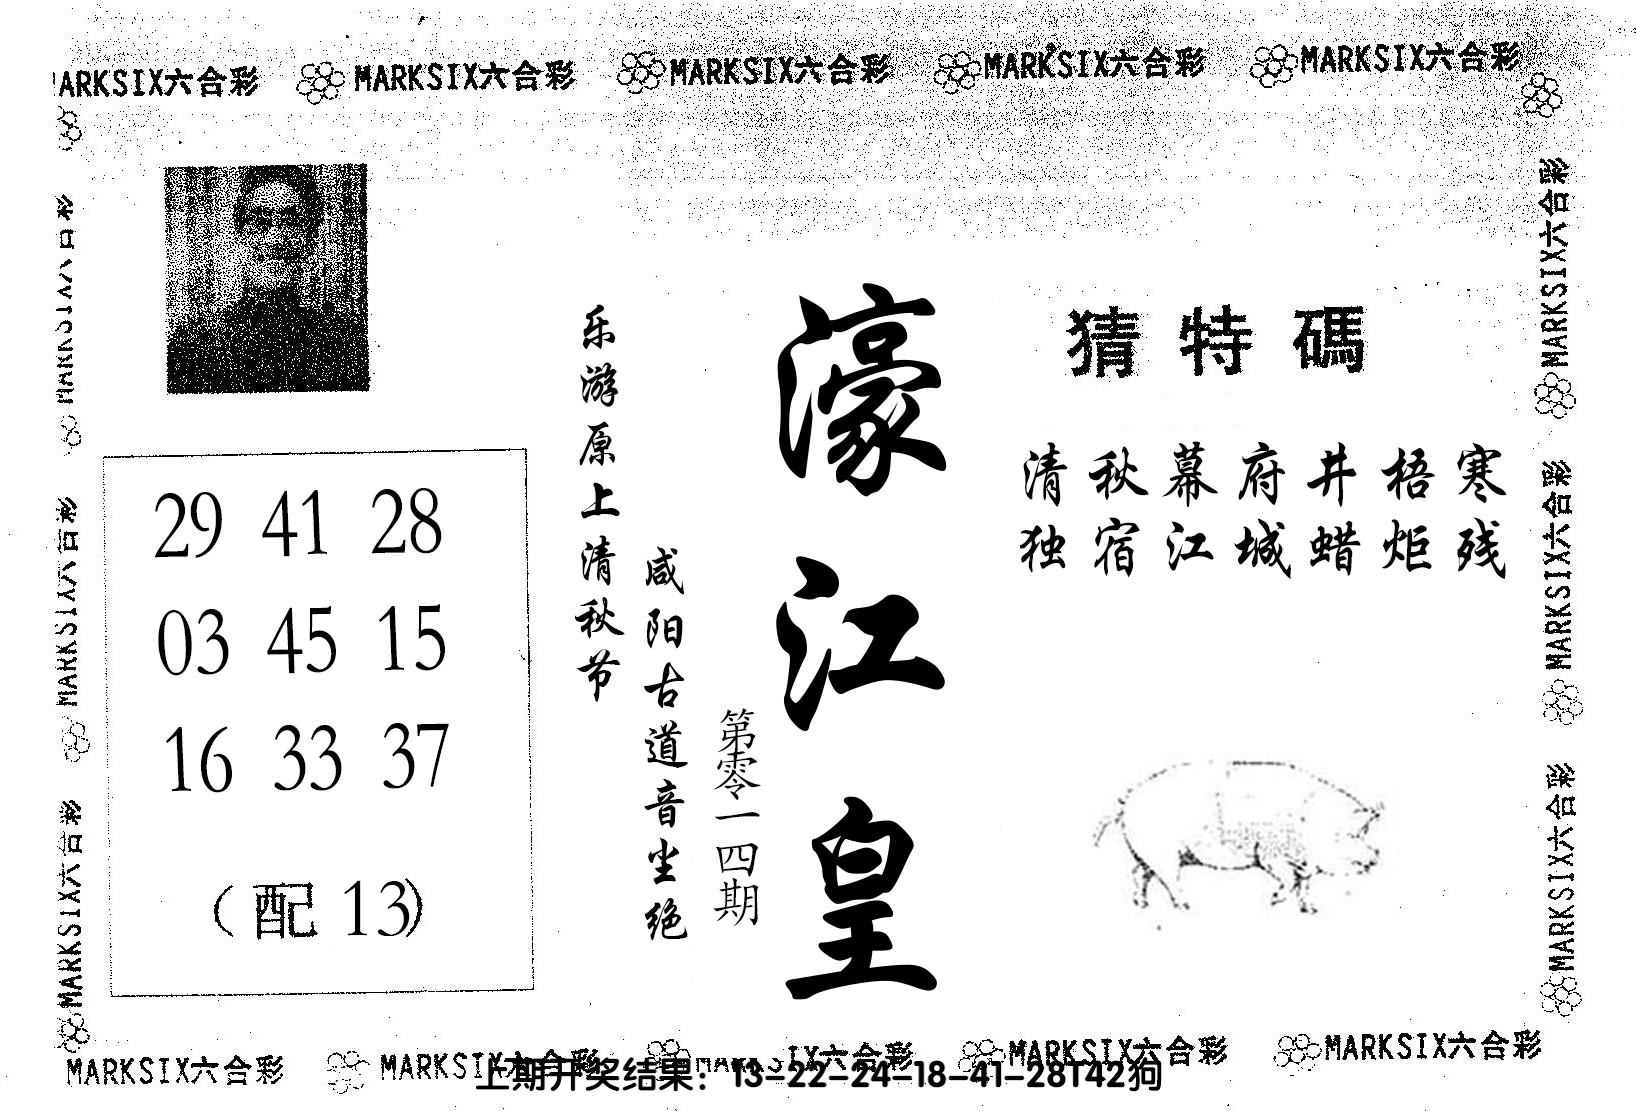 MARKSIX六合彩 MARKSIX六合彩 MARKSIX六合彩 MARKSIX六合彩 MARKSIX六合彩
猜特碼
清秋幕府井梧寒
独宿江城蜡炬残
濠江皇
第零一四期
乐游原上清秋节
咸阳古道音尘绝
29 41 28
03 45 15
16 33 37
(配 13)
MARKSIX六合彩
MARKSIX六合彩
MARKSIX六合彩
MARKSIX六合彩
MARKSIX六合彩
MARKSIX六合彩
MARKSIX六合彩 MARKSIX六合彩 MARKSIX六合彩 MARKSIX六合彩 MARKSIX六合彩
上期开奖结果：13-22-24-18-41-28T42狗